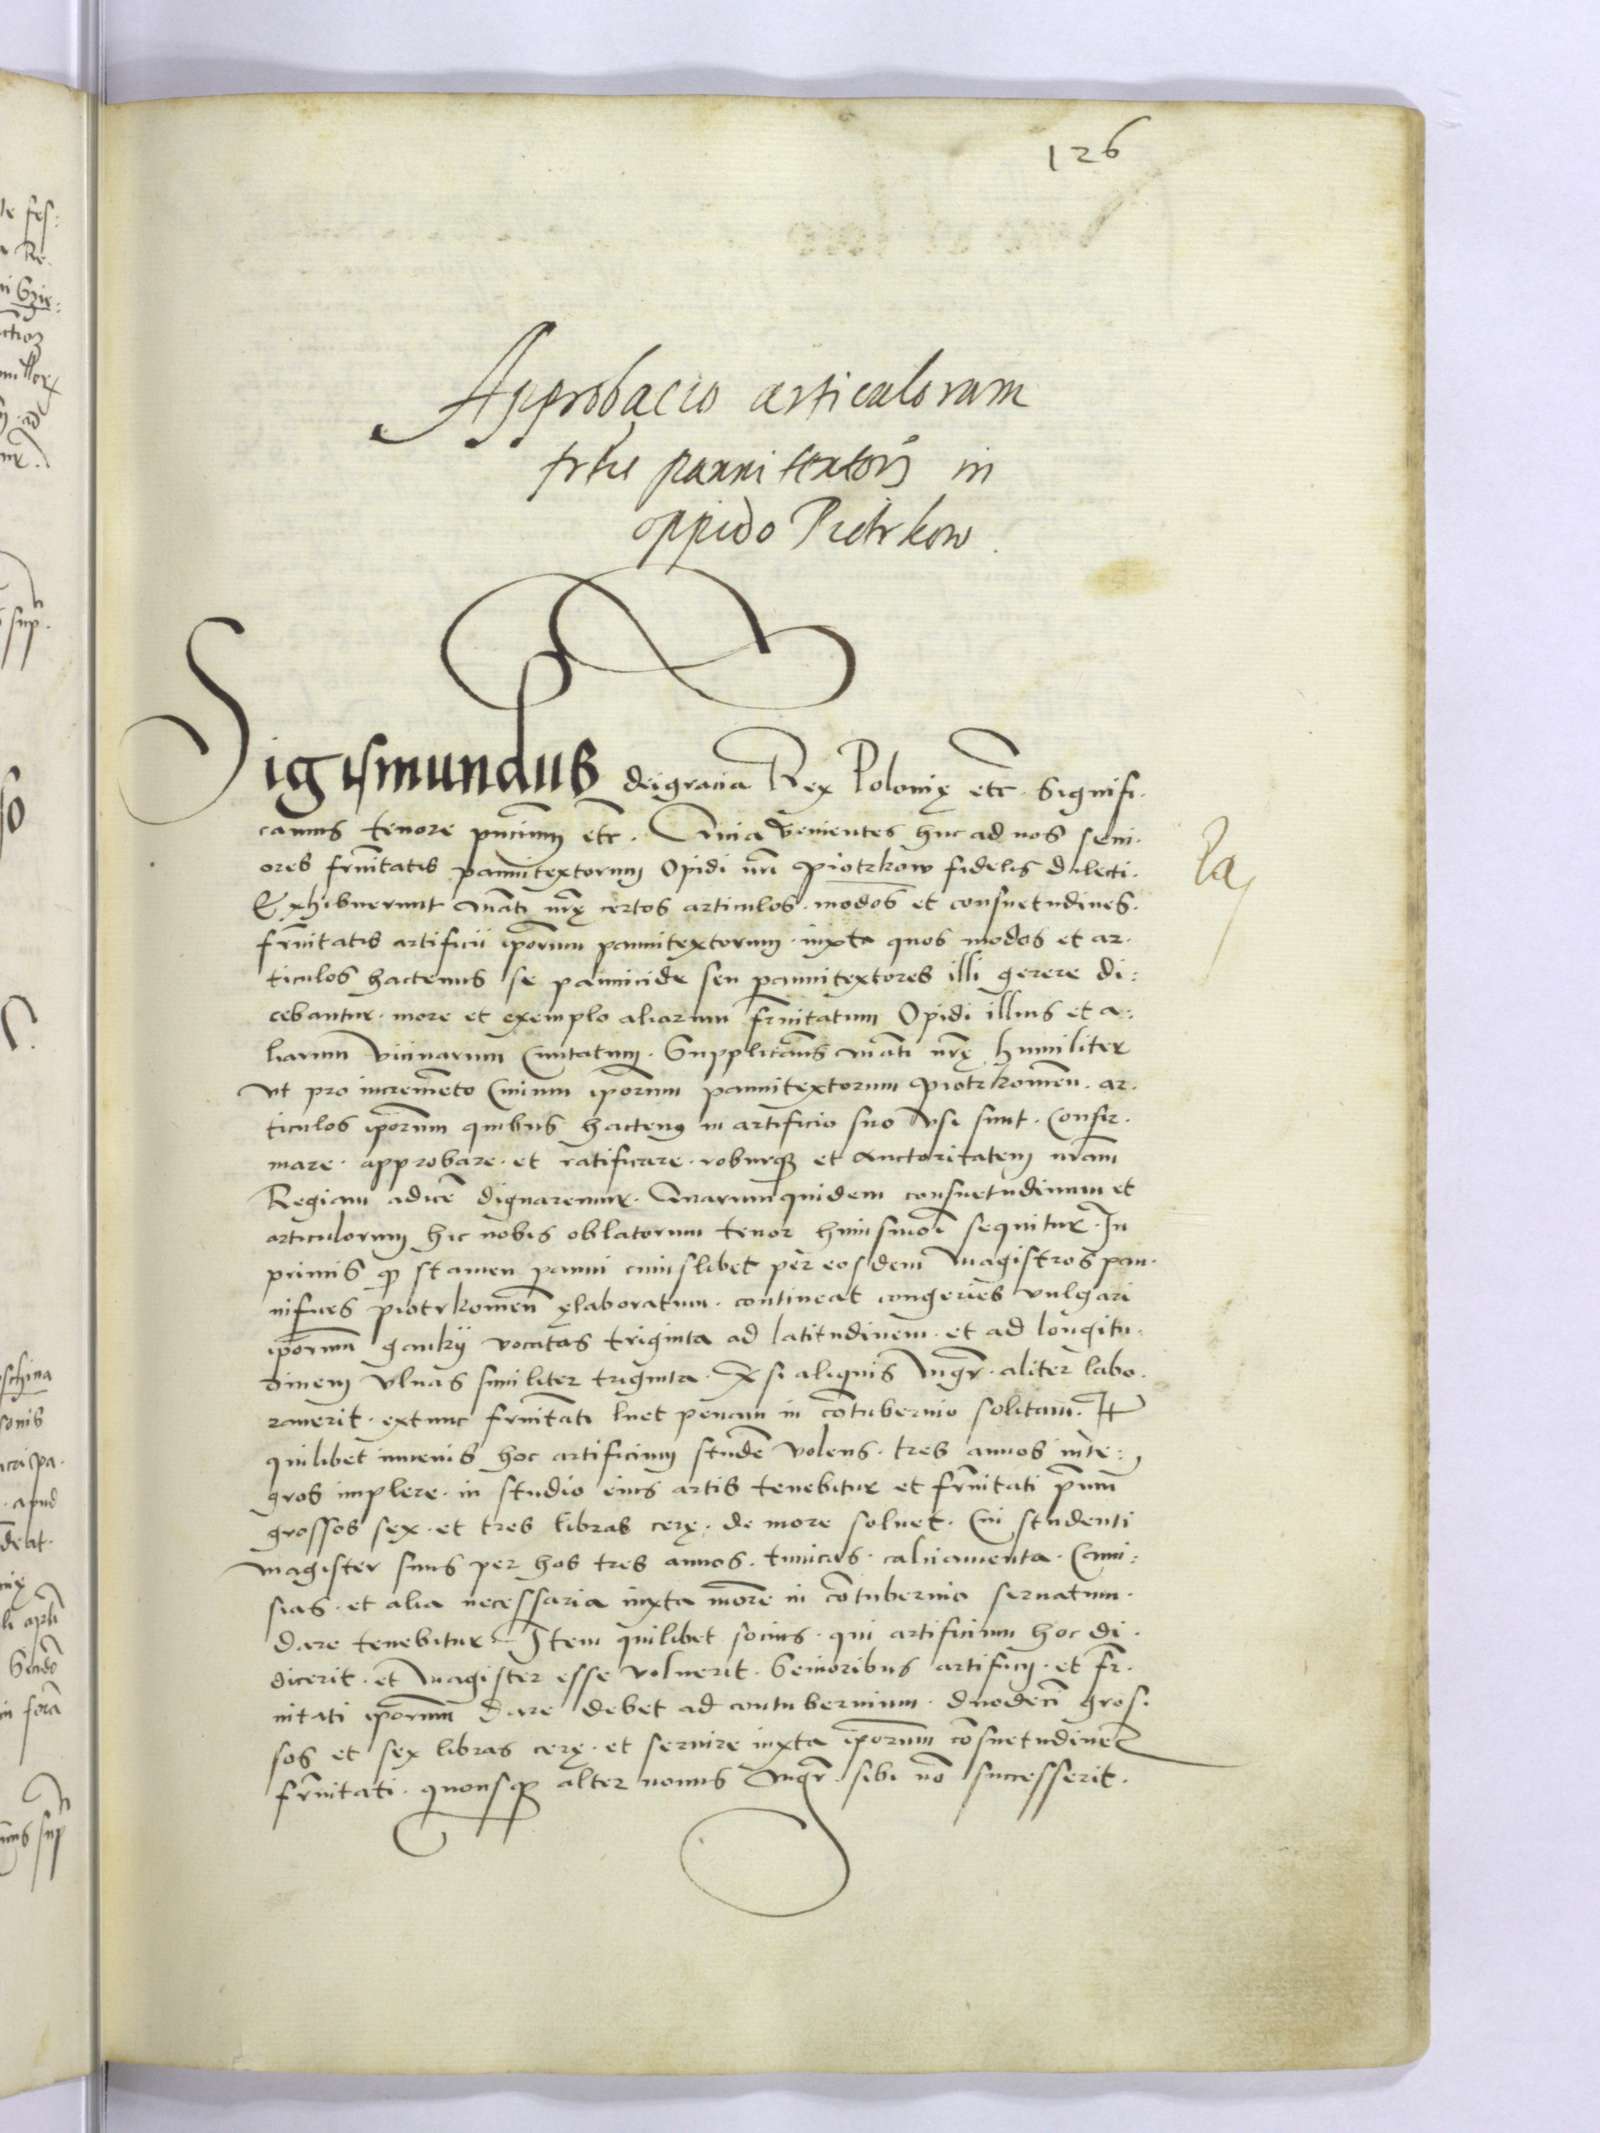 126
Approbacio articulorum
frtis pannitextorum in
oppido Piotrkow.
Sigismundus deigracia Rex Polonię etc. Signifi.
camus tenore pncium etc. Quia venientes huc ad nos seni.
ores frnitatis pannitextorum Opidi nri Piotrkow fideles dilecti.
Exhibuerunt Mati nrę certos articulos. modos et consuetudines.
frnitatis artificii iporum pannitextorum. iuxta quos modos et ar.
ticulos hactenus se pannicide seu pannitextores illi gerere di:
cebantur. more et exemplo aliarum frnitatum Opidi illius et a:
liarum vicinarum Civitatum. Supplicans Mati nrę humiliter
vt pro incremeto Civium iporum pannitextorum Piotrkowien. ar.
ticulos iporum quibus hactenus in artificio suo vsi sunt. Confir.
mare. approbare. et ratificare. roburque et Auctoritatem nram
Regiam adice dignaremur. Quarumquidem consuetudinum et
articulorum hic nobis oblatorum tenor huiusmoi sequitur. In
primis quod stamen panni cuiuslibet per eosdem Magistros pan.
nifices piotrkowien elaboratum. contineat congeries vulgari
iporum ganky vocatas triginta ad latitudinem. et ad longitu.
dinem Vlnas similiter triginta. Et si aliquis Mgr. aliter labo.
raverit. extunc frnitati luet penam in cotubernio solitam. It
quilibet iuvenis hoc artificium stude volens. tres annos inte:
gros implere. in studio eius artis tenebitur et frnitati pmum
grossos sex. et tres libras cerę. de more solvet. Cui studenti
Magister suus per hos tres annos. tunicas. calciamenta. Cami:
sias. et alia necessaria iuxta more in cotubernio servatum.
Dare tenebitur. Item quilibet socius. qui artificium hoc di.
dicerit. et Magister esse voluerit. Senioribus artificii. et fr.
nitati iporum Dare debet ad contubernium. duodeci gros.
sos et sex libras cerę. et servire iuxta iporum cosuetudinem
frnitati. quousque alter novus Mgr. sibi no successerit.